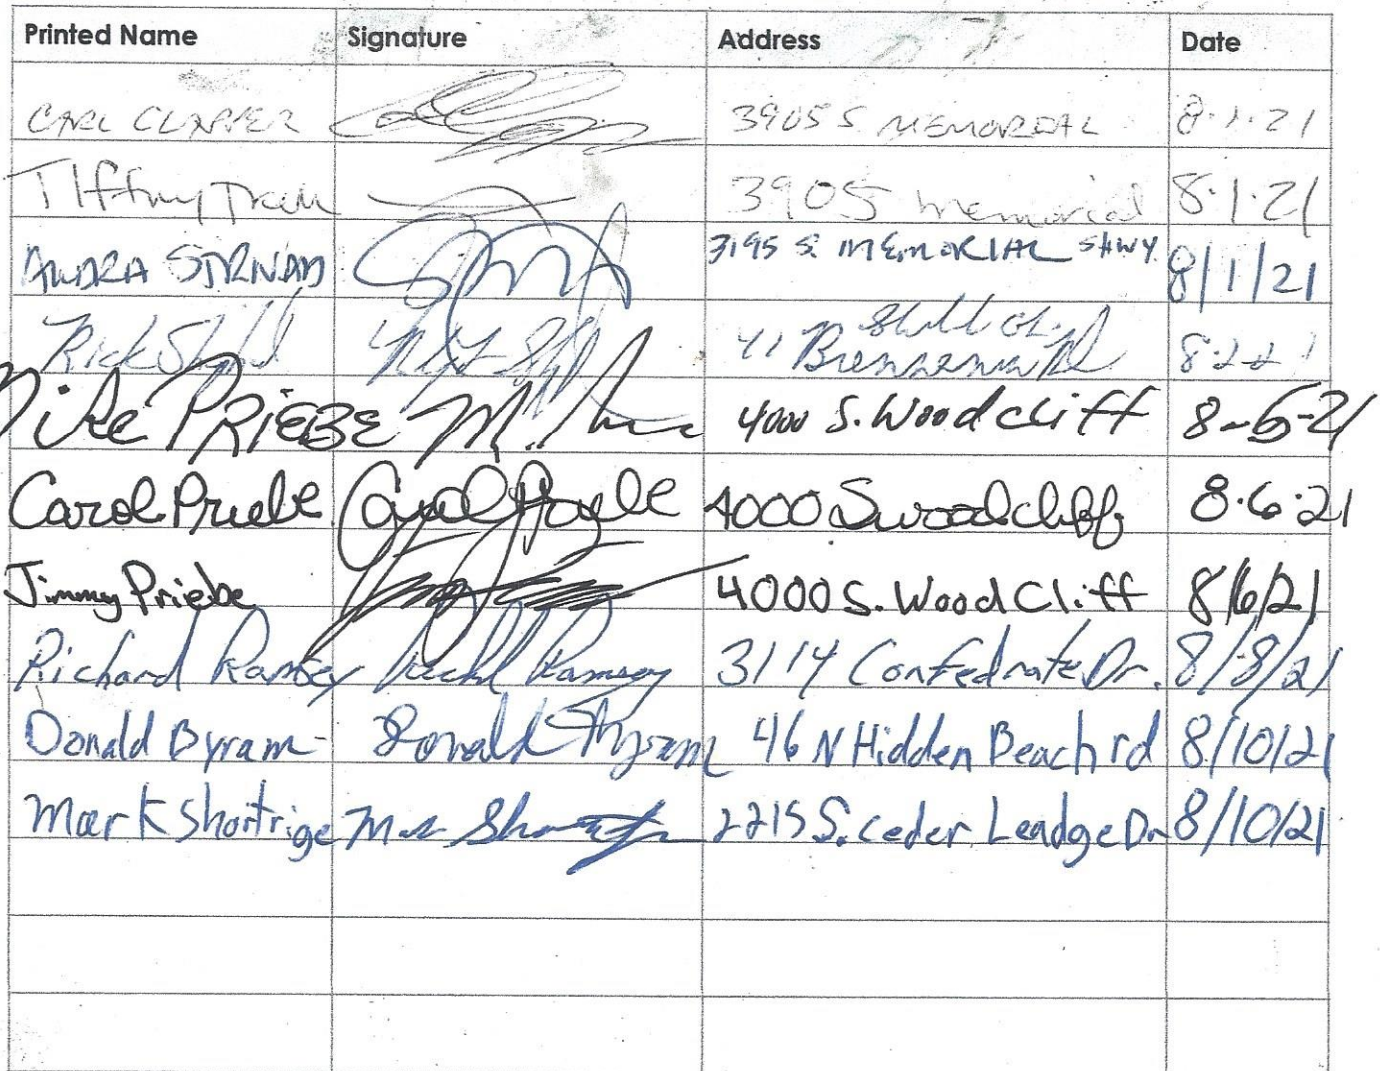 Printed Name Signature Address Date
CARL CLAPPER 3905 S MEMORIAL 8.1.21
Tiffany Tram 3905 memorial 8.1.21
AUDRA STRNAD 3195 S. MEMORIAL SHWY. 8/1/21
Rick 41
Mike PRIEBE M. 4000 S. Woodcliff 8-6-21
Carol Priebe Carol 4000 S woodcliff 8.6.21
Jimmy Priebe 4000 S. Wood Cliff 8/6/21
Richard Ramsey Ramsey 3114 Confedrate Dr. 8/8/21
Donald Byram Donald Byram 46 N Hidden Beach rd 8/10/21
Mark Shortrige 2215 S. ceder Leadge Dr 8/10/21